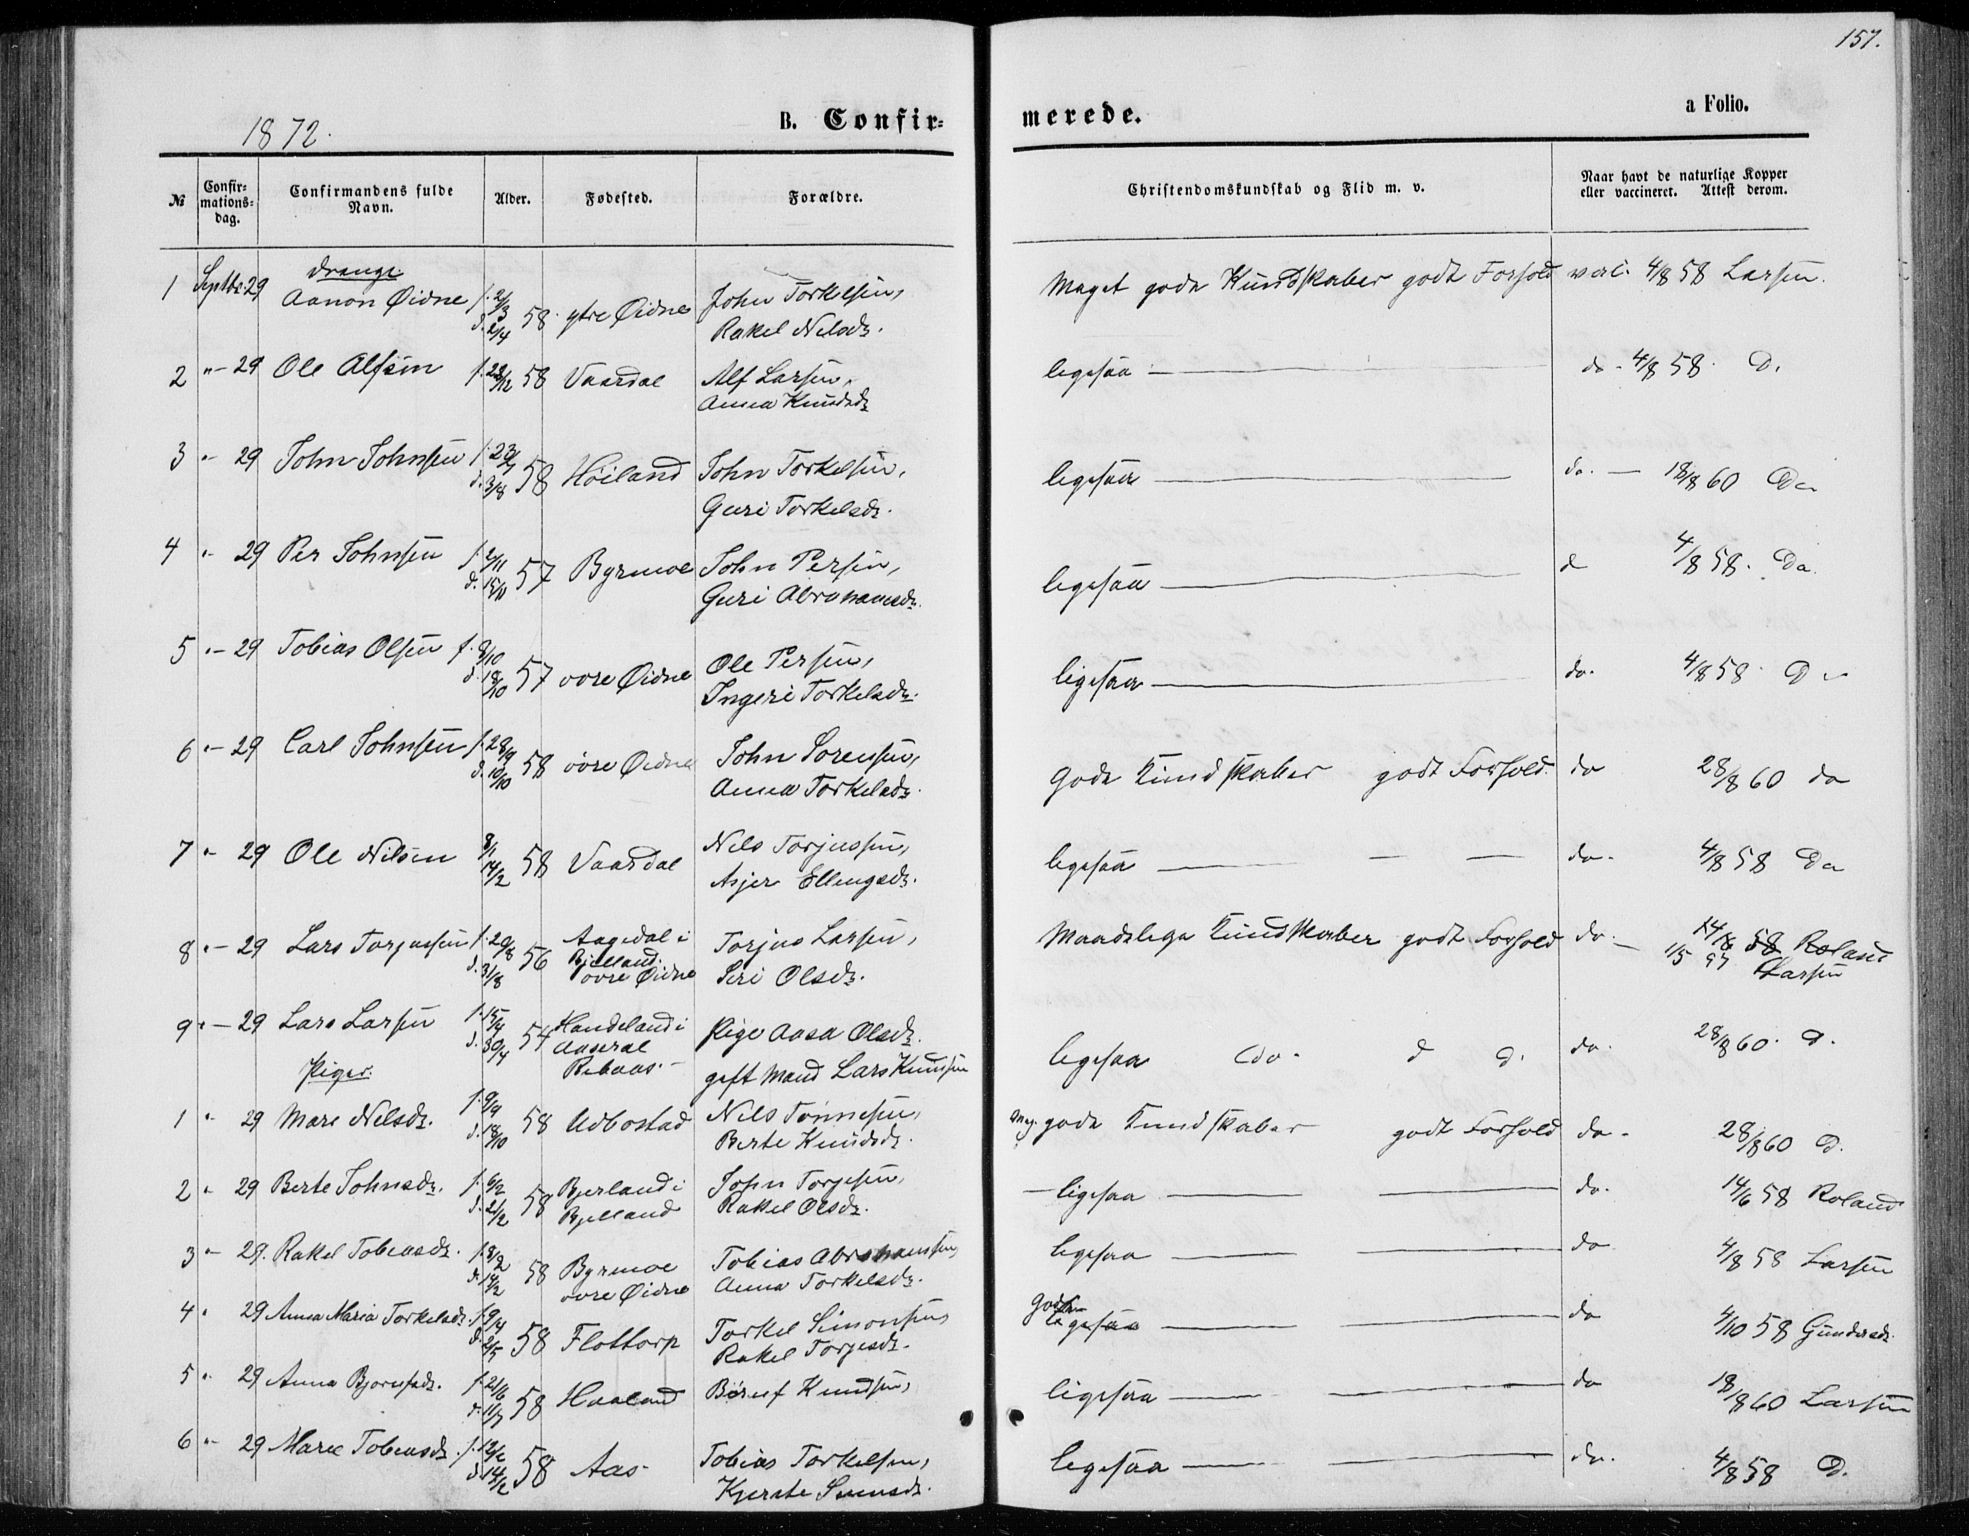 157.
1872.
B. Confir=
merede.
a Folio.
№
Confir=
mations=
dag.
Confirmandens fulde
Navn.
Alder.
Fødested.
Forældre.
Christendomskundskab og Flid m. v.
Naar havt de naturlige Kopper
eller vaccineret. Attest derom.
Drange
1 Septbr. 29 Aanon Øidne f. 2/3 d. 2/4 58 ytre Øidne John Torkelsen, Meget gode Kundskaber godt Forhold 4/8 58 Larsen.
Rakel Nilsdr.
2 " - 29 Ole Alfsen f. 28/12 58 Vaardal Alf Larsen, ligesaa do. 4/8 58. D.
Anna Knudsdr
3 " 29 John Johnsen f. 23/7 d. 3/8 58 Høiland John Torkelsen, ligesaa do. 18/8 60 Do
Guri Torkelsdr.
4 " 29 Per Johnsen f. 2/11 d. 15/11 57 Byrmoe John Persen, ligesaa d 4/8 58. Do.
Guri Abrahamsdr.
5 " - 29 Tobias Olsen f. 8/10 d. 18/10 57 øvre Øidne Ole Persen, ligesaa do. 4/8 58 D
Ingeri Torkelsdr.
6 " - 29 Carl Johnsen f. 28/9 d. 10/10 58 øvre Øidne John Sørensen, Gode Kundskaber godt Forhold. do 28/8 60 do
Anna Torkelsdr.
7 " 29 Ole Nilsen 8/1 14/2 58 Vaardal Nils Torjussen, ligesaa do. 4/8 58 Do
Asjer Ellingsdr.
8 " - 29 Lars Torjussen f. 20/8 d. 31/8 56 Aagedal i Torjus Larsen, Maadelige Kundskaber godt Forhold do. 14/6 58 Roland
Bjelland. 1/5 57 Larsen
øvre Øidne Siri Olsdr.
9 " - 29 Lars Larsen f. 15/4 d. 30/4 54 Handeland i Pige Aasa Olsdr. ligesaa do. d d. do. 28/8 60. D.
Aaseral
gift Mand Lars Knudsen
Piger.
1 " 29 Mare Nilsdr. f. 9/9 d. 18/10 58 Udbostad Nils Tønnesen, Meg. gode Kundskaber godt Forhold do. 28/8 60 D.
Berte Knudsdr.
2 " 29 Berte Johnsdr. f. 6/2 d. 21/2 58 Bjerland i John Torjesen, ligesaa do. 14/6 58 Roland
Bjelland Rakel Olsdr.
3 " 29. Rakel Tobiasdr. f. 3/2 d. 14/2 58 Byrmoe Tobias Abrahamsen, ligesaa do 4/8 58 Larsen
øvre Øidne Anna Torkelsdr.
4 " 29 Anna Maria Torkelsdr. f. 9/4 d. 2/5 58 Flottorp Torkel Simonsen, gode ligesaa do 4/10 58 Gundersdr.
Rakel Torjesdr.
5 " 29 Anna Bjørnsdr. f. 21/6 d. 11/7 58 Haaland Børuf Knudsen, ligesaa do 18/8 60 Larsen
6 " 29 Maree Tobiasdr. f. 12/2 d. 14/2 58 Aas. Tobias Torkelsen, ligesaa do. 4/8 58 D.
Kjerste